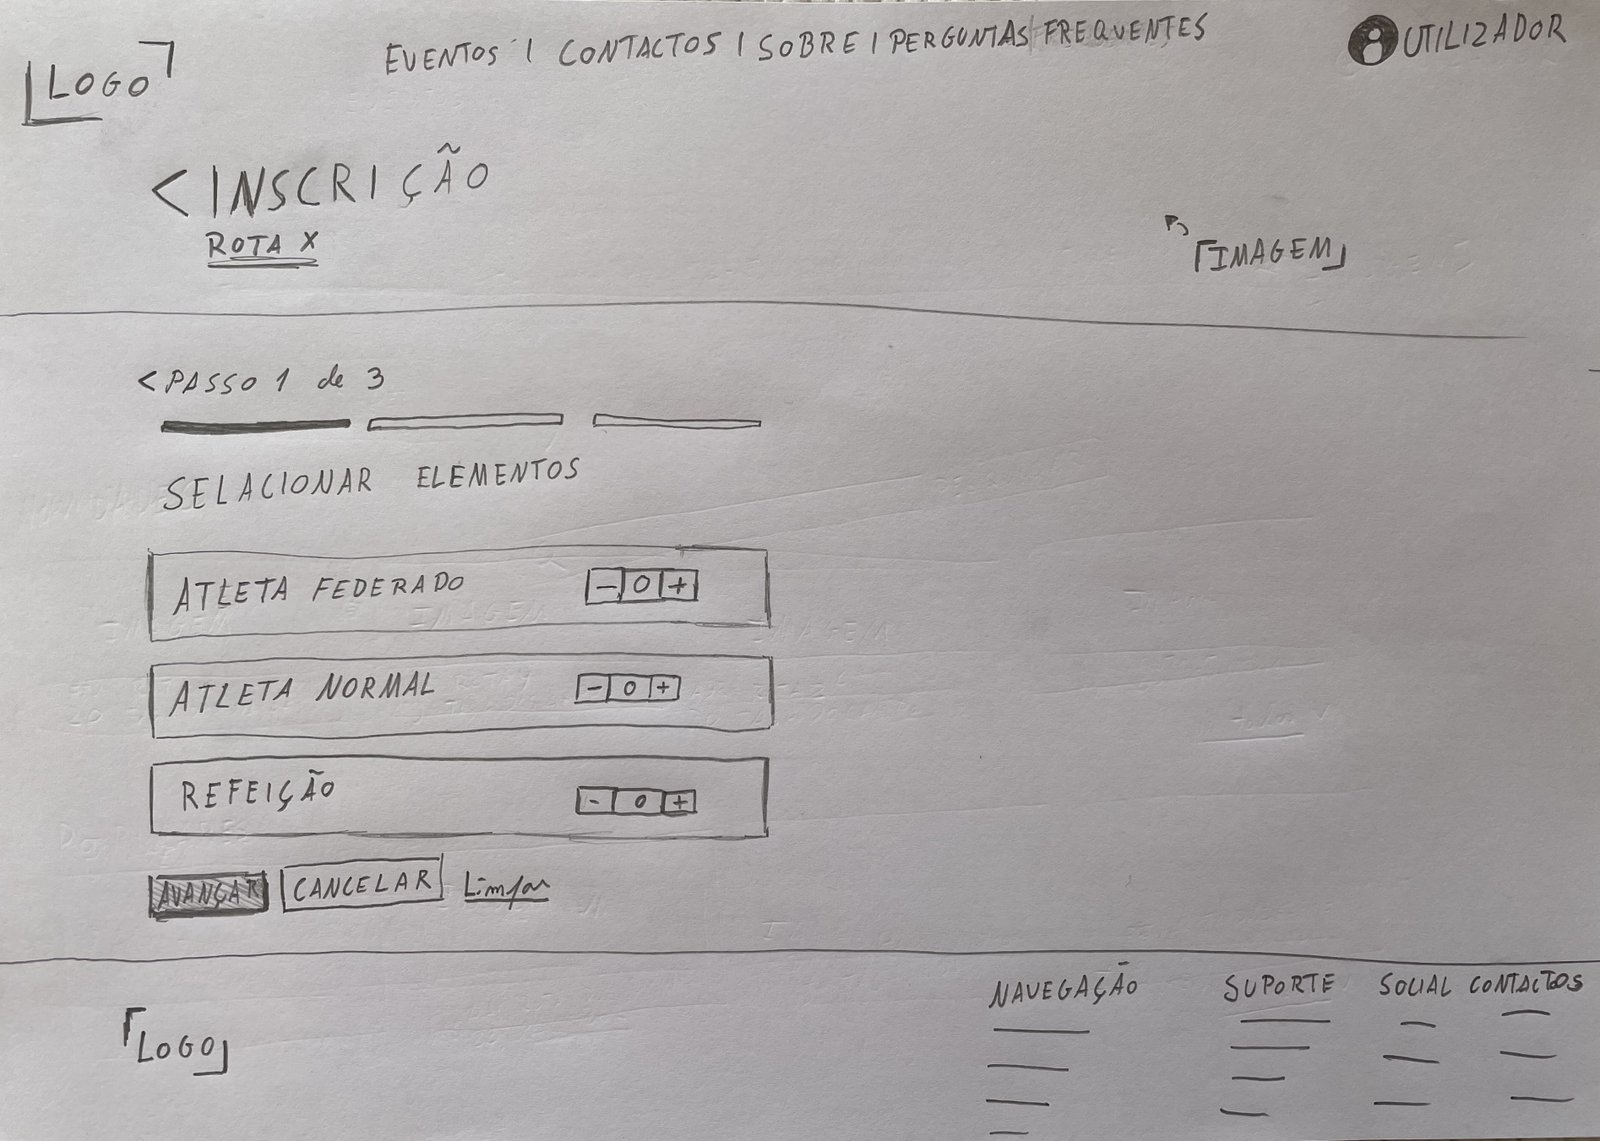 LOGO
EVENTOS | CONTACTOS | SOBRE | PERGUNTAS FREQUENTES
UTILIZADOR
< INSCRIÇÃO
ROTA X
IMAGEM
< PASSO 1 de 3
SELACIONAR ELEMENTOS
ATLETA FEDERADO - 0 +
ATLETA NORMAL - 0 +
REFEIÇÃO - 0 +
AVANÇAR CANCELAR Limpar
LOGO
NAVEGAÇÃO SUPORTE SOCIAL CONTACTOS